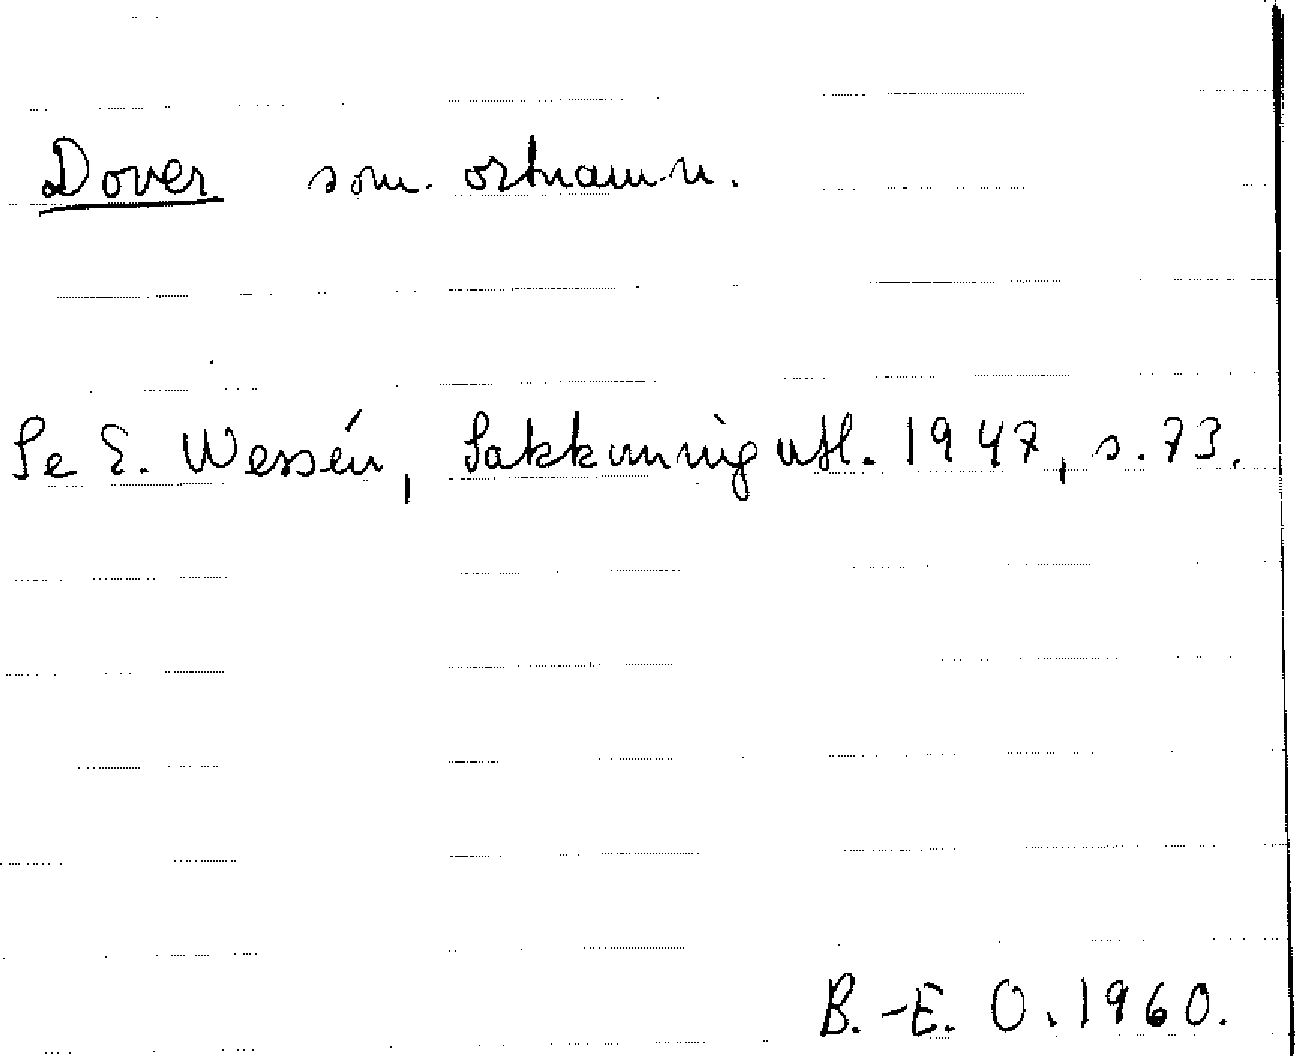 Dover som ortnamn.
Se E. Wessén, Sakkunnigutl. 1947, s. 73.
B.-E. O. 1960.